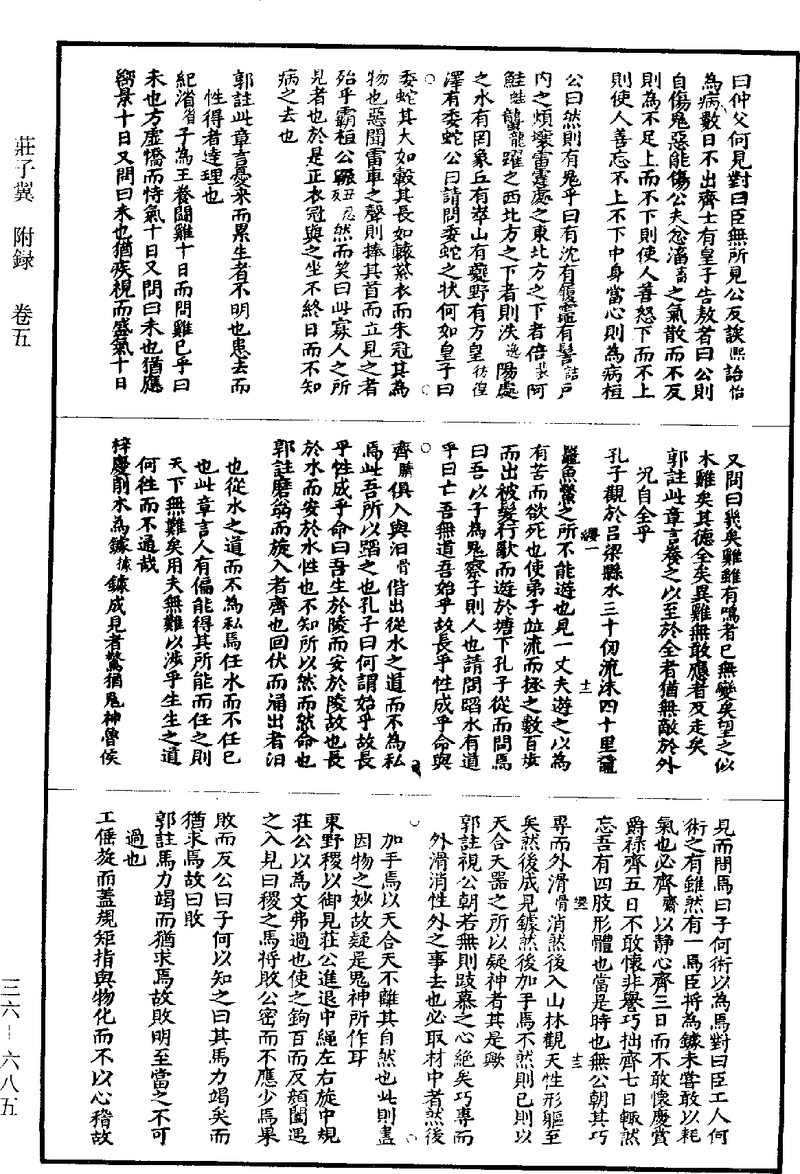 曰仲父何見對曰臣無所見公反誒熙詒怡
為病數日不出齊士有皇子告敖者曰公則
自傷鬼惡能傷公夫忿滀畜之氣散而不反
則為不足上而不下則使人善怒下而不上
則使人善忘不上不下中身當心則為病桓
公曰然則有鬼乎曰有沈有履竈有髻詰戶
內之煩壤雷霆處之東北方之下者倍裴阿
鮭蛙蠪龍躍之西北方之下者則泆逸陽處
之水有罔象丘有峷山有夔野有方皇彷徨
澤有委蛇公曰請問委蛇之狀何如皇子曰
委蛇其大如轂其長如轅紫衣而朱冠其為
物也惡聞雷車之聲則捧其首而立見之者
殆乎霸桓公辴丑忍然而笑曰此寡人之所
見者也於是正衣冠與之坐不終日而不知
病之去也
郭註此章言憂來而累生者不明也患去而
性得者達理也
紀渻省子為王養鬬雞十日而問雞已乎曰
未也方虛憍而恃氣十日又問曰未也猶應
嚮景十日又問曰未也猶疾視而盛氣十日
又問曰幾矣雞雖有鳴者已無變矣望之似
木雞矣其德全矣異雞無敢應者反走矣
郭註此章言養之以至於全者猶無敵於外
況自全乎
孔子觀於呂梁縣水三十仞流沫四十里黿
鼉魚鱉之所不能游也見一丈夫遊之以為
有苦而欲死也使弟子竝流而拯之數百步
而出被髮行歌而遊於塘下孔子從而問焉
曰吾以子為鬼察子則人也請問蹈水有道
乎曰亡吾無道吾始乎故長乎性成乎命與
齊臍俱入與汩骨偕出從水之道而不為私
焉此吾所以蹈之也孔子曰何謂始乎故長
乎性成乎命曰吾生於陵而安於陵故也長
於水而安於水性也不知所以然而然命也
郭註磨翁而旋入者齊也回伏而涌出者汩
也從水之道而不為私焉任水而不任己
也此章言人有偏能得其所能而任之則
天下無難矣用夫無難以涉乎生生之道
何往而不通哉
梓慶削木為鐻據鐻成見者驚猶鬼神魯侯
見而問焉曰子何術以為焉對曰臣工人何
術之有雖然有一焉臣將為鐻未嘗敢以耗
氣也必齊齋以靜心齊三日而不敢懷慶賞
爵祿齊五日不敢懷非譽巧拙齊七日輒然
忘吾有四肢形體也當是時也無公朝其巧
專而外滑骨消然後入山林觀天性形軀至
矣然後成見鐻然後加手焉不然則已則以
天合天器之所以疑神者其是歟
郭註視公朝若無則跂慕之心絕矣巧專而
外滑消性外之事去也必取材中者然後
加手焉以天合天不離其自然也此則盡
因物之妙故疑是鬼神所作耳
東野稷以御見莊公進退中繩左右旋中規
莊公以為文弗過也使之鉤百而反顏闔遇
之入見曰稷之馬將敗公密而不應少焉果
敗而反公曰子何以知之曰其馬力竭矣而
猶求焉故曰敗
郭註馬力竭而猶求焉故敗明至當之不可
過也
工倕旋而蓋規矩指與物化而不以心稽故
莊子翼 附錄 卷五
三六—六八五